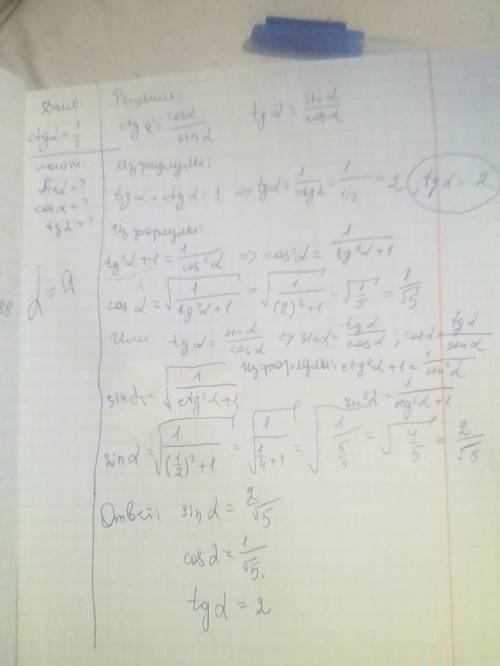 Дано:
ctgα = 1/2
найти
sinα = ?
cosα = ?
tgα = ?
α = a
Решение:
ctgα = cosα/sinα tgα = sinα/cosα
Из формулы:
tgα · ctgα = 1 ⇒ tgα = 1/ctgα = 1/1/2 = 2, tgα = 2
Из формулы:
tg²α + 1 = 1/cos²α ⇒ cos²α = 1/tg²α+1
cosα = √1/tg²α+1 = √1/(2)²+1 = √1/5 = 1/√5
Или tgα = sinα/cosα ⇒ sinα = tgα/cosα; cosα = tgα/sinα
Из формулы: ctg²α + 1 = 1/sin²α
sinα = √1/ctg²α+1 sin²α = 1/ctg²α+1
sinα = √1/(1/2)²+1 = √1/1/4+1 = √1/5/4 = √4/5 = 2/√5
Ответ: sinα = 2/√5
cosα = 1/√5,
tgα = 2